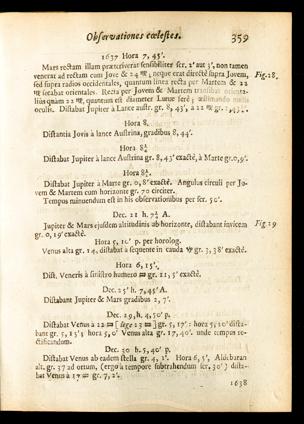 Observationes cœlestes. 359
1637 Hora 7, 45'.
Mars rectam illam præteriverat sensibiliter scr. 2' aut 3', non tamen
venerat ad rectam cum Jove & 24 ♍; neque erat directè supra Jovem,
Fig. 28.
sed supra radios occidentales, quantum linea recta per Martem & 22
♍ secabat orientales. Recta per Jovem & Martem transibat orienta-
liùs quàm 22 ♍, quantum est diameter Lunæ ferè; æstimando nudis
oculis. Distabat Jupiter à Lance austr. gr. 8, 43', à 22 ♍ gr.
Hora 8.
Distantia Jovis à lance Austrina, gradibus 8, 44'.
Hora 8¼
Distabat Jupiter à lance Austrina gr. 8, 43' exactè, à Marte gr. 0, 9'.
Hora 8¾.
Distabat Jupiter à Marte gr. 0, 8' exactè. Angulus circuli per Jo-
vem & Martem cum horizonte gr. 70 circiter.
Tempus minuendum est in his observationibus per scr. 50'.
Dec. 21 h. 7¾ A.
Jupiter & Mars ejusdem altitudinis ab horizonte, distabant invicem
Fig. 29
gr. 0, 19' exactè.
Hora 5, 10' p. per horolog.
Venus alta gr. 14, distabat à sequente in cauda ♑ gr. 3, 38' exactè.
Hora 6, 15'.
Dist. Veneris à sinistro humero ♒ gr. 11, 5' exactè.
Dec. 25 h. 7, 45' A.
Distabant Jupiter & Mars gradibus 2, 7'.
Dec. 29, h. 4, 50' p.
Distabat Venus à 22 ♒ [lege 23 ♒] gr. 5, 17': hora 5, 10' dista-
bant gr. 5, 15'; hora 5, 0' Venus alta gr. 17, 40'. unde tempus re-
ctificandum.
Dec. 30 h. 5, 40' p.
Distabat Venus ab eadem stella gr. 4, 2'. Hora 6, 5', Aldebaran
alt. gr. 37 ad ortum, (ergo à tempore subtrahendum scr. 30') dista-
bat Venus à 17 ♒ gr. 7, 2'.
1638